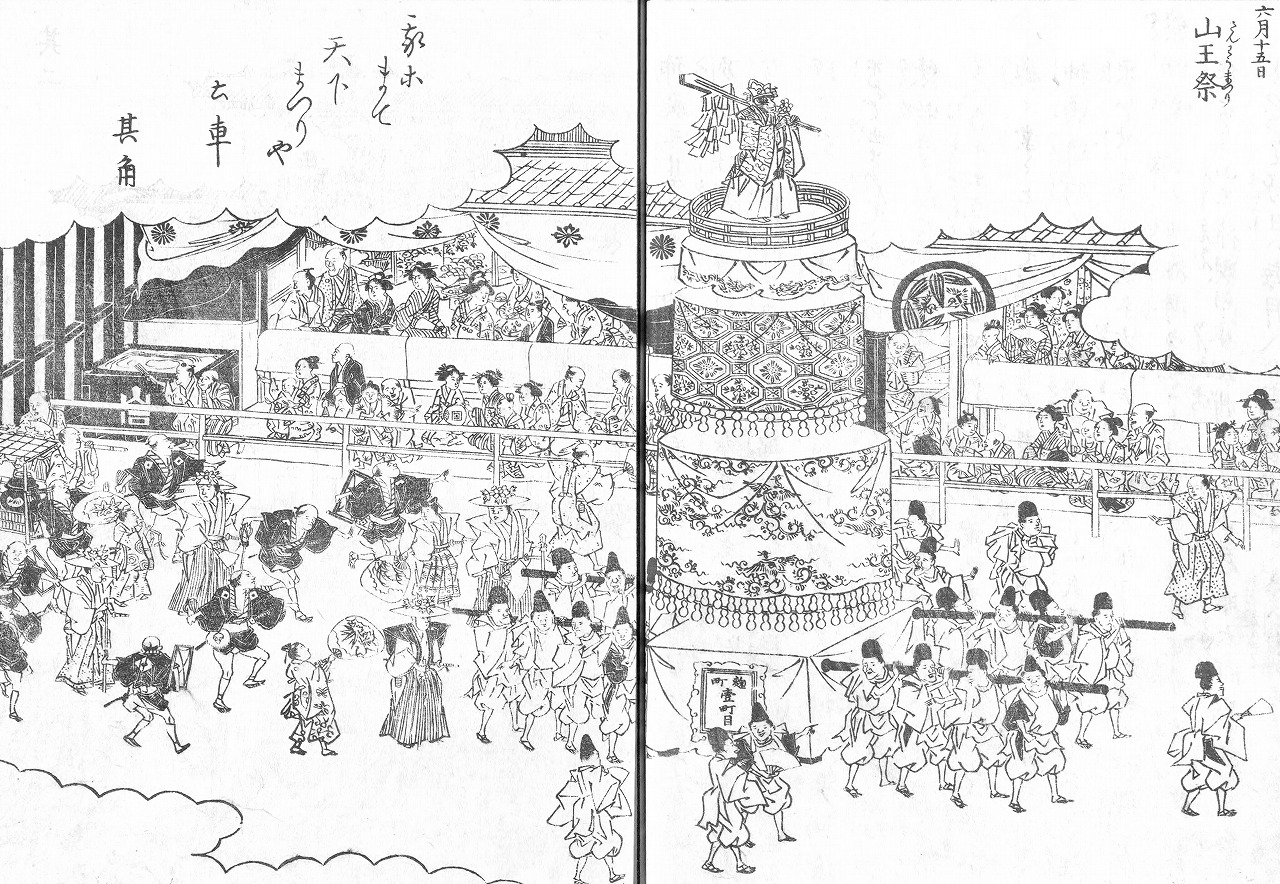 六月十五日
さんわうまつり
山王祭
麹町
壹町目
我等
まて
天下
まつりや
土車
其角